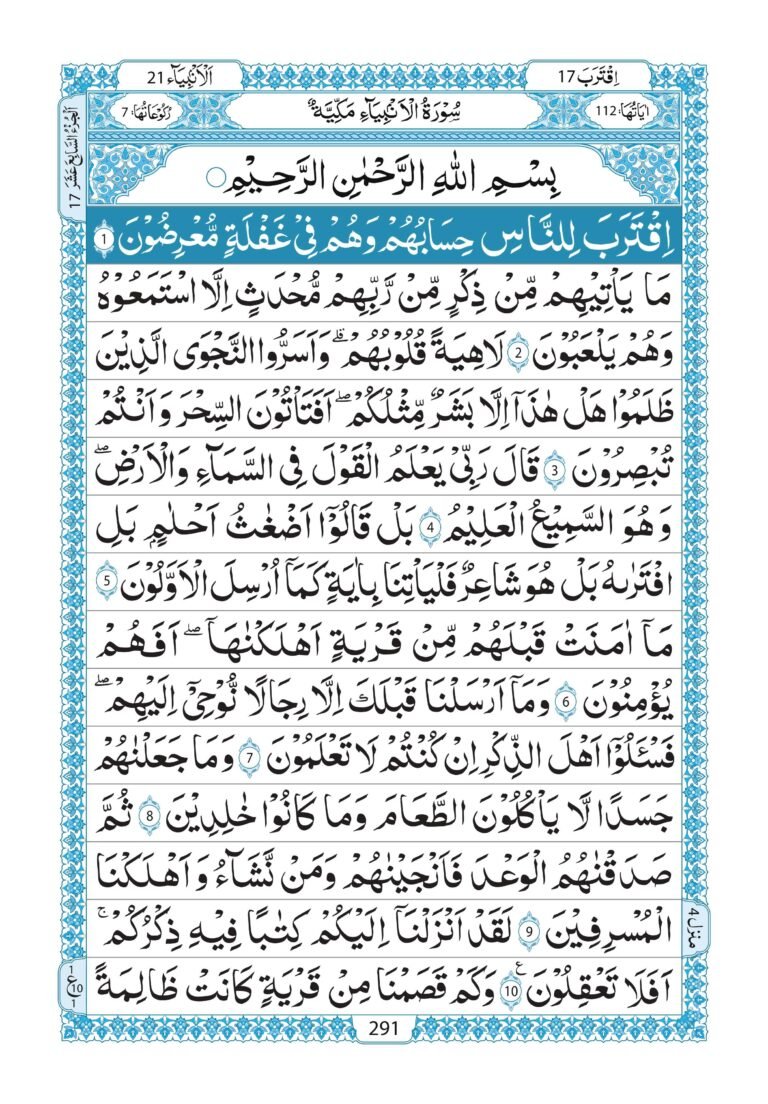 اِقْتَرَبَ 17
اَلْاَنْۢبِيَآء 21
اٰيَاتُهَا: 112
سُوْرَةُ الْاَنْۢبِيَآءِ مَكِّيَّةٌ
رُكُوْعَاتُهَا: 7
اَلْجُزْءُ السَّابِعَ عَشَرَ 17
بِسْمِ اللّٰهِ الرَّحْمٰنِ الرَّحِيْمِ ○
اِقْتَرَبَ لِلنَّاسِ حِسَابُهُمْ وَهُمْ فِيْ غَفْلَةٍ مُّعْرِضُوْنَ 1
مَا يَاْتِيْهِمْ مِّنْ ذِكْرٍ مِّنْ رَّبِّهِمْ مُّحْدَثٍ اِلَّا اسْتَمَعُوْهُ
وَهُمْ يَلْعَبُوْنَ 2 لَاهِيَةً قُلُوْبُهُمْ ۗ وَاَسَرُّوا النَّجْوَى الَّذِيْنَ
ظَلَمُوْا هَلْ هٰذَآ اِلَّا بَشَرٌ مِّثْلُكُمْ ۖ اَفَتَاْتُوْنَ السِّحْرَ وَاَنْتُمْ
تُبْصِرُوْنَ 3 قَالَ رَبِّيْ يَعْلَمُ الْقَوْلَ فِي السَّمَآءِ وَالْاَرْضِ ۖ
وَهُوَ السَّمِيْعُ الْعَلِيْمُ 4 بَلْ قَالُوْٓا اَضْغٰثُ اَحْلٰمٍۭ بَلِ
افْتَرٰىهُ بَلْ هُوَ شَاعِرٌ فَلْيَاْتِنَا بِاٰيَةٍ كَمَآ اُرْسِلَ الْاَوَّلُوْنَ 5
مَآ اٰمَنَتْ قَبْلَهُمْ مِّنْ قَرْيَةٍ اَهْلَكْنٰهَا ۖ اَفَهُمْ
يُؤْمِنُوْنَ 6 وَمَآ اَرْسَلْنَا قَبْلَكَ اِلَّا رِجَالًا نُّوْحِيْٓ اِلَيْهِمْ ۖ
فَسْـَٔلُوْٓا اَهْلَ الذِّكْرِ اِنْ كُنْتُمْ لَا تَعْلَمُوْنَ 7 وَمَا جَعَلْنٰهُمْ
جَسَدًا لَّا يَاْكُلُوْنَ الطَّعَامَ وَمَا كَانُوْا خٰلِدِيْنَ 8 ثُمَّ
صَدَقْنٰهُمُ الْوَعْدَ فَاَنْجَيْنٰهُمْ وَمَنْ نَّشَآءُ وَاَهْلَكْنَا
الْمُسْرِفِيْنَ 9 لَقَدْ اَنْزَلْنَآ اِلَيْكُمْ كِتٰبًا فِيْهِ ذِكْرُكُمْ ۚ
مَنْزِل 4
اَفَلَا تَعْقِلُوْنَ 10 ع وَكَمْ قَصَمْنَا مِنْ قَرْيَةٍ كَانَتْ ظَالِمَةً
1
ع 10
1
291